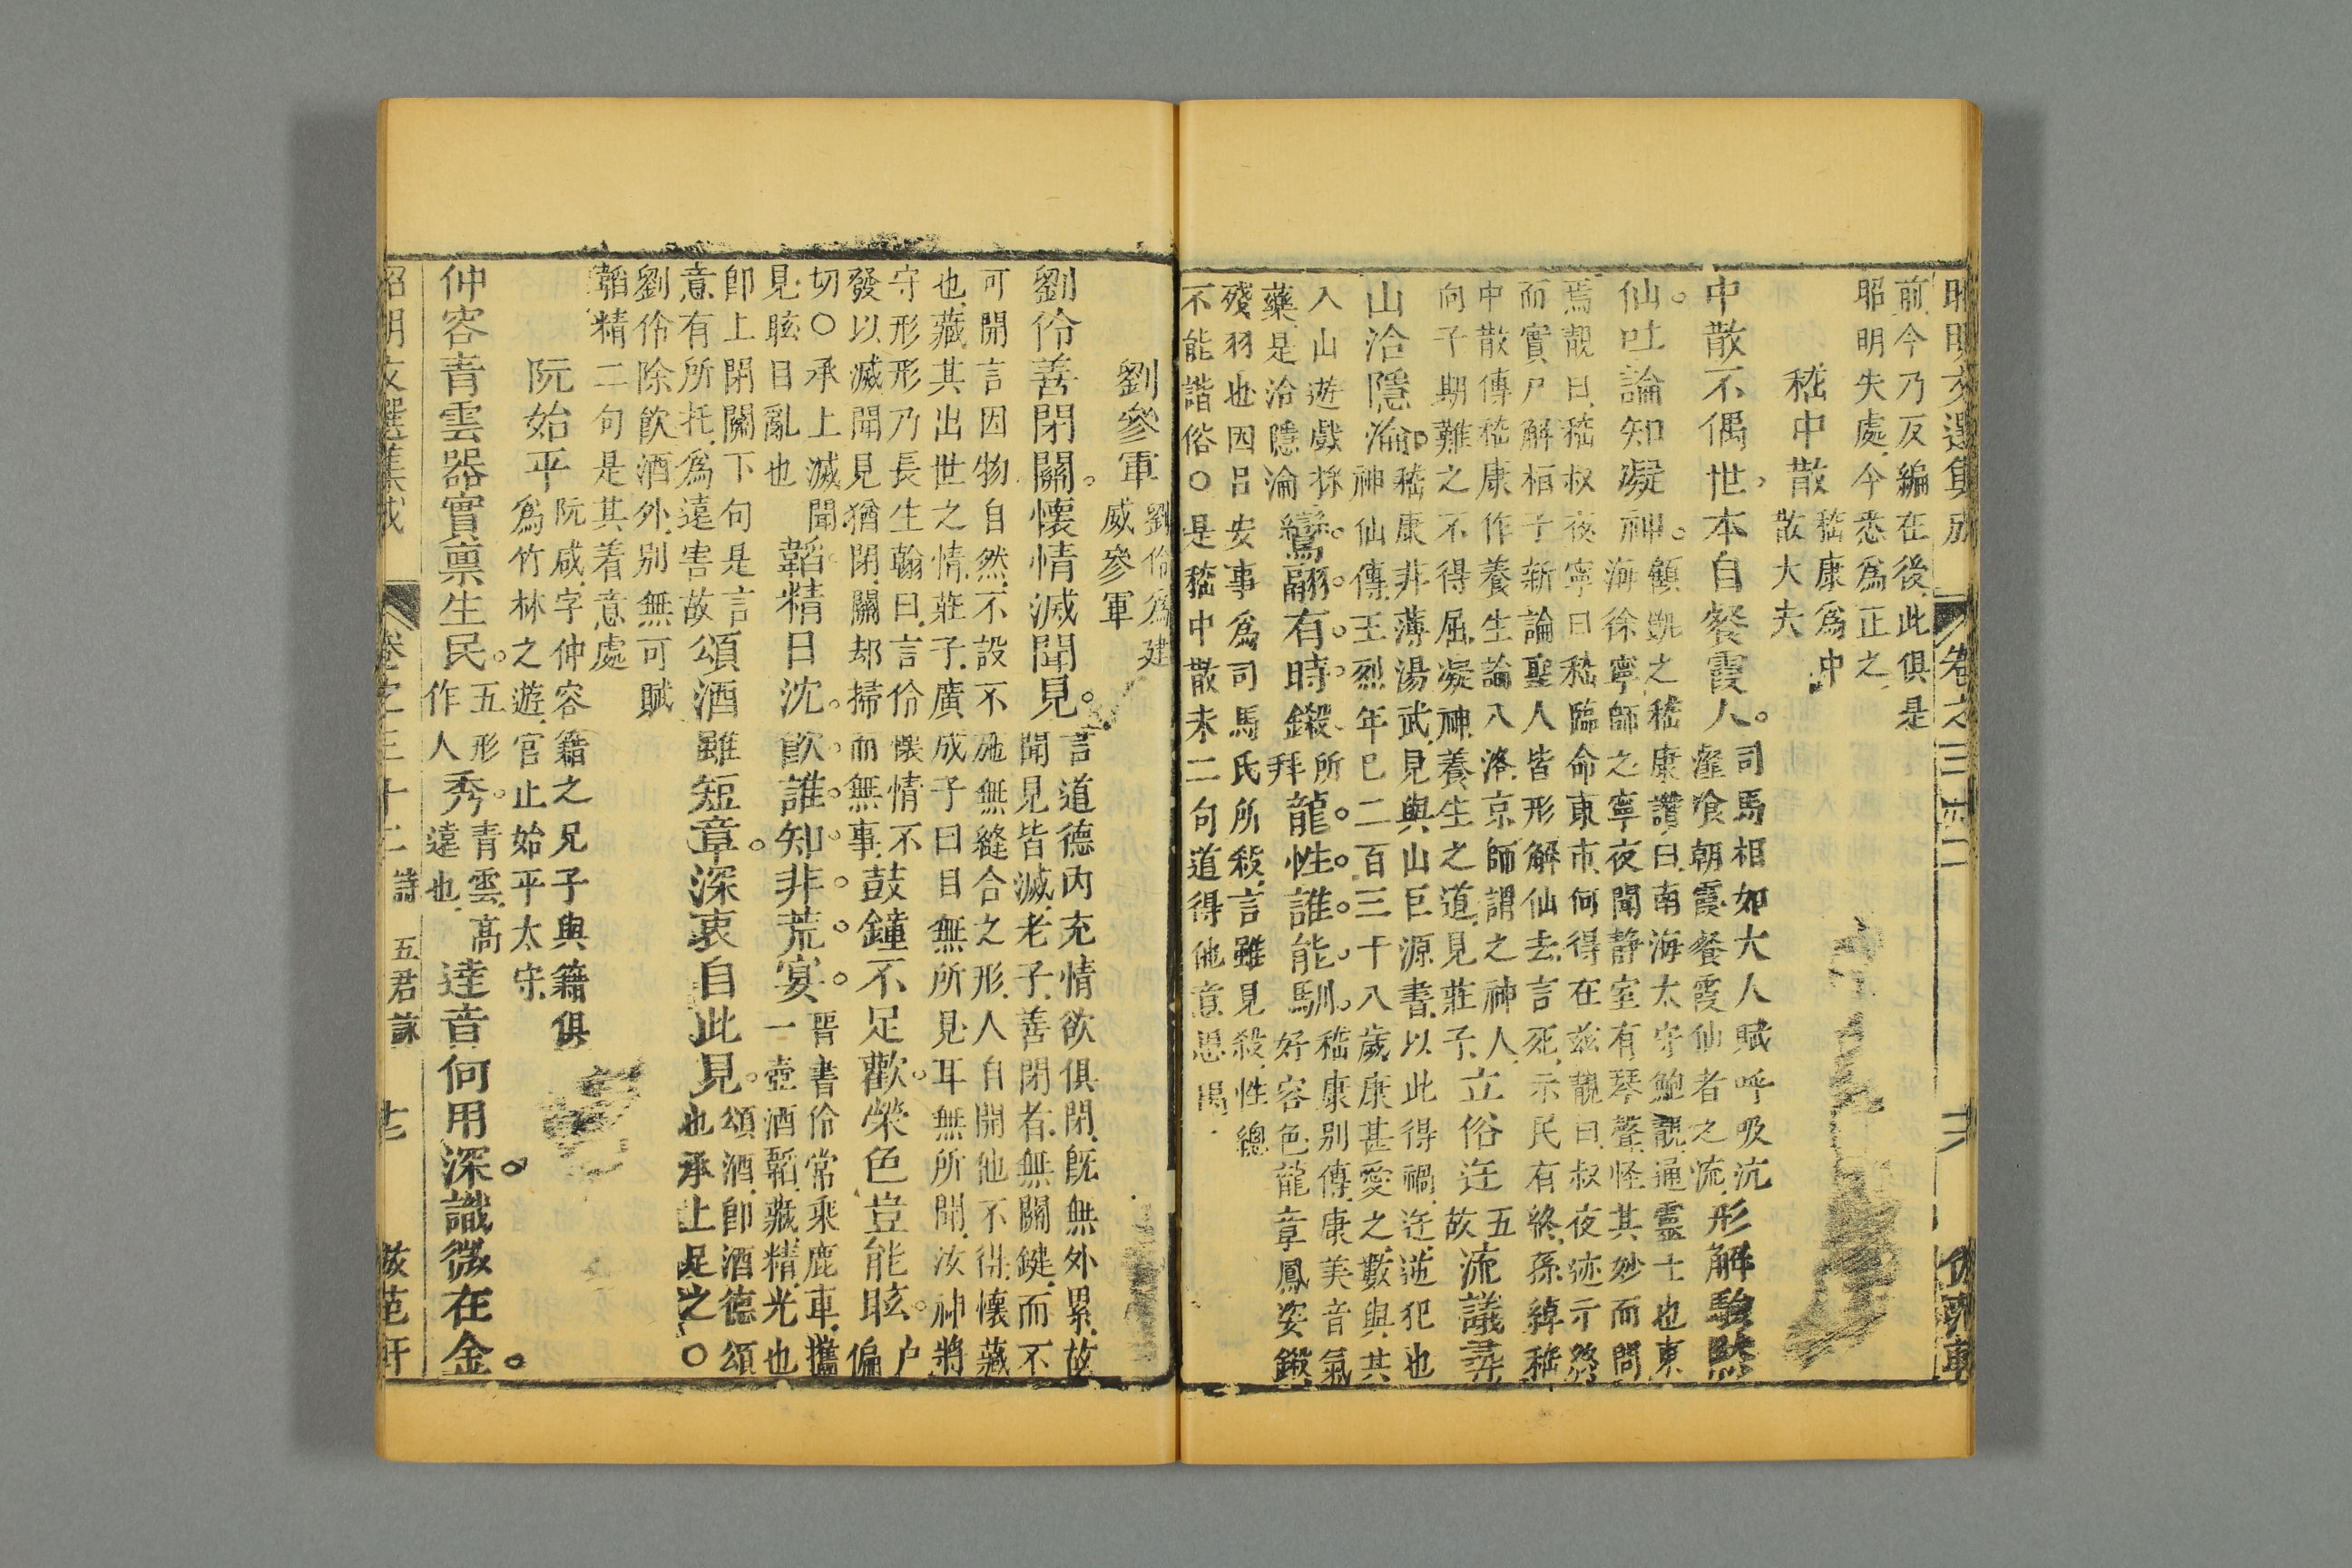 昭明文選集成 卷之三十二 六
前今乃反編在後此俱是
昭明失處今悉爲正之
嵇中散 嵇康爲中散大夫
中散不偶世本自餐霞人 司馬相如大人賦呼吸沆瀣飡朝霞餐霞仙者之流 形解驗默
仙吐論知凝神 顧凱之嵇康讚曰南海太守鮑靚通靈士也東海徐寧師之寧夜聞静室有琴聲怪其妙而問
焉靚曰嵇叔夜寧曰嵇臨命東市何得在兹靚曰叔夜迹示終
而實尸解桓子新論聖人皆形解仙去言死示民有終孫綽嵇
中散傳嵇康作養生論入洛京師謂之神人
向子期難之不得屈凝神養生之道見莊子 立俗迕 五故 流議尋
山洽隱淪 嵇康非薄湯武見與山巨源書以此得禍迕逆犯也神仙傳王烈年已二百三十八歲康甚愛之數與其
入山遊戲採藥是洽隱淪 鸞翮有時鎩 所拜 龍性誰能馴 嵇康别傳康美音氣好容色龍章鳳姿鎩
殘羽也因呂安事爲司馬氏所殺言雖見殺性總
不能諧俗○是嵇中散未二句道得他意思
劉參軍 劉伶爲建威參軍
劉伶善閉關懷情滅聞見 言道德内充情欲俱閉旣無外累故聞見皆滅老子善閉者無關鍵而不
可開言因物自然不設不施無縫合之形人自開他不得懷藏
也藏其出世之情莊子廣成子曰目無所見耳無所聞汝神將
守形形乃長生翰曰言伶懷情不
發以滅聞見猶閉關却掃而無事 鼓鐘不足歡榮色豈能眩 户偏
切○承上滅聞
見眩目亂也 韜精日沈飮誰知非荒宴 晋書伶常乘鹿車攜一壺酒韜藏精光也
卽上閉關下句是言
意有所托爲遠害故 頌酒雖短章深衷自此見 頌酒卽酒德頌也承上足之○
劉伶除飮酒外别無可賦
韜精二句是其着意處
阮始平 阮咸字仲容籍之兄子與籍俱爲竹林之遊官止始平太守
仲容青雲器實禀生民 五形作人 秀 青雲高遠也 達音何用深識微在金
昭明文選集成 卷之三十二 詩 五君詠 七 倣范軒